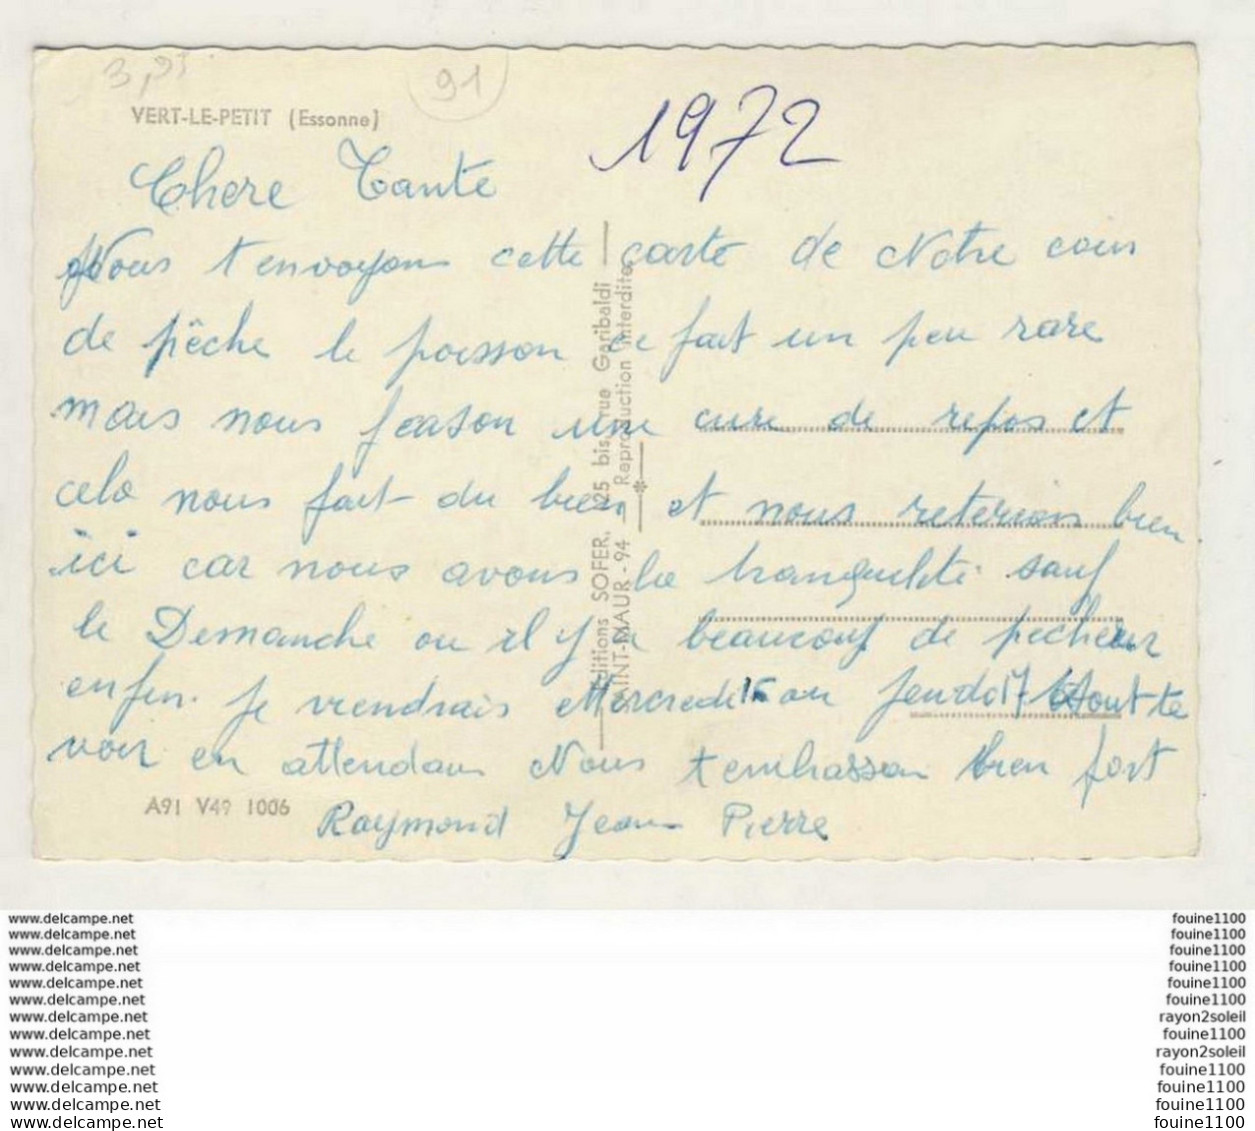 3,95
91
VERT-LE-PETIT (Essonne)
1972
Chere Tante
Nous t envoyons cette carte de Notre couis
de pêche le poisson ce fait un peu rare
mais nous feason une cure de repos et
cela nous fait du bien et nous reterions bien
ici car nous avons la tranquilité sauf
le Demanche ou il y a beaucoup de pecheur
enfin. je viendrais Mercredi 16 ou Jeudi 17 Aout te
voir en attendans Nous t embrasson bien fort
Raymond Jean Pierre
A91 V49 1006
Editions SOFER, 125 bis, rue Garibaldi
SAINT-MAUR - 94 Reproduction interdite
www.delcampe.net
www.delcampe.net
www.delcampe.net
www.delcampe.net
www.delcampe.net
www.delcampe.net
www.delcampe.net
www.delcampe.net
www.delcampe.net
www.delcampe.net
www.delcampe.net
www.delcampe.net
www.delcampe.net
fouine1100
fouine1100
fouine1100
fouine1100
fouine1100
fouine1100
rayon2soleil
fouine1100
rayon2soleil
fouine1100
fouine1100
fouine1100
fouine1100